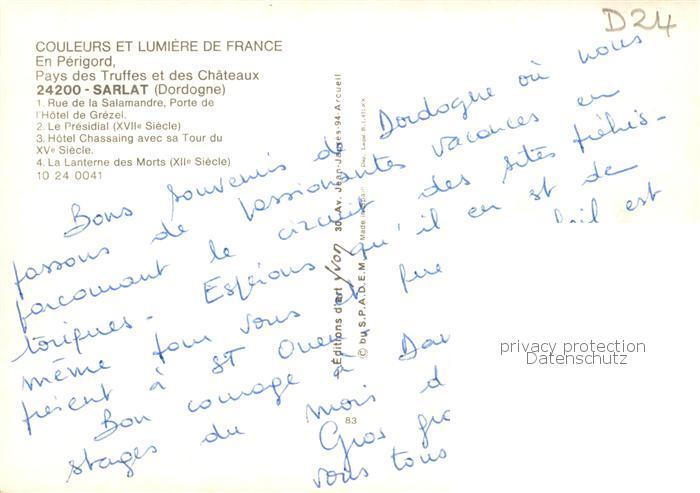 D24
COULEURS ET LUMIÈRE DE FRANCE
En Périgord,
Pays des Truffes et des Châteaux
24200 - SARLAT (Dordogne)
1. Rue de la Salamandre, Porte de
l'Hôtel de Grézel.
2. Le Présidial (XVIIe Siècle)
3. Hôtel Chassaing avec sa Tour du
XVe Siècle.
4. La Lanterne des Morts (XIIe Siècle)
10 24 0041
Bons souvenirs de Dordogne où nous
passons de passionnantes vacances en
parcourant le circuit des sites préhis-
toriques - Espérons qu'il en st de
même pour vous et que
est
présent à St Ouen
Bon courage à Dav
stages du mois d
Gros
vous tous
Editions d'art YVON 30, Av. Jean-Jaurès-94-Arcueil
© by S.P.A.D.E.M. Made in
83
privacy protection
Datenschutz